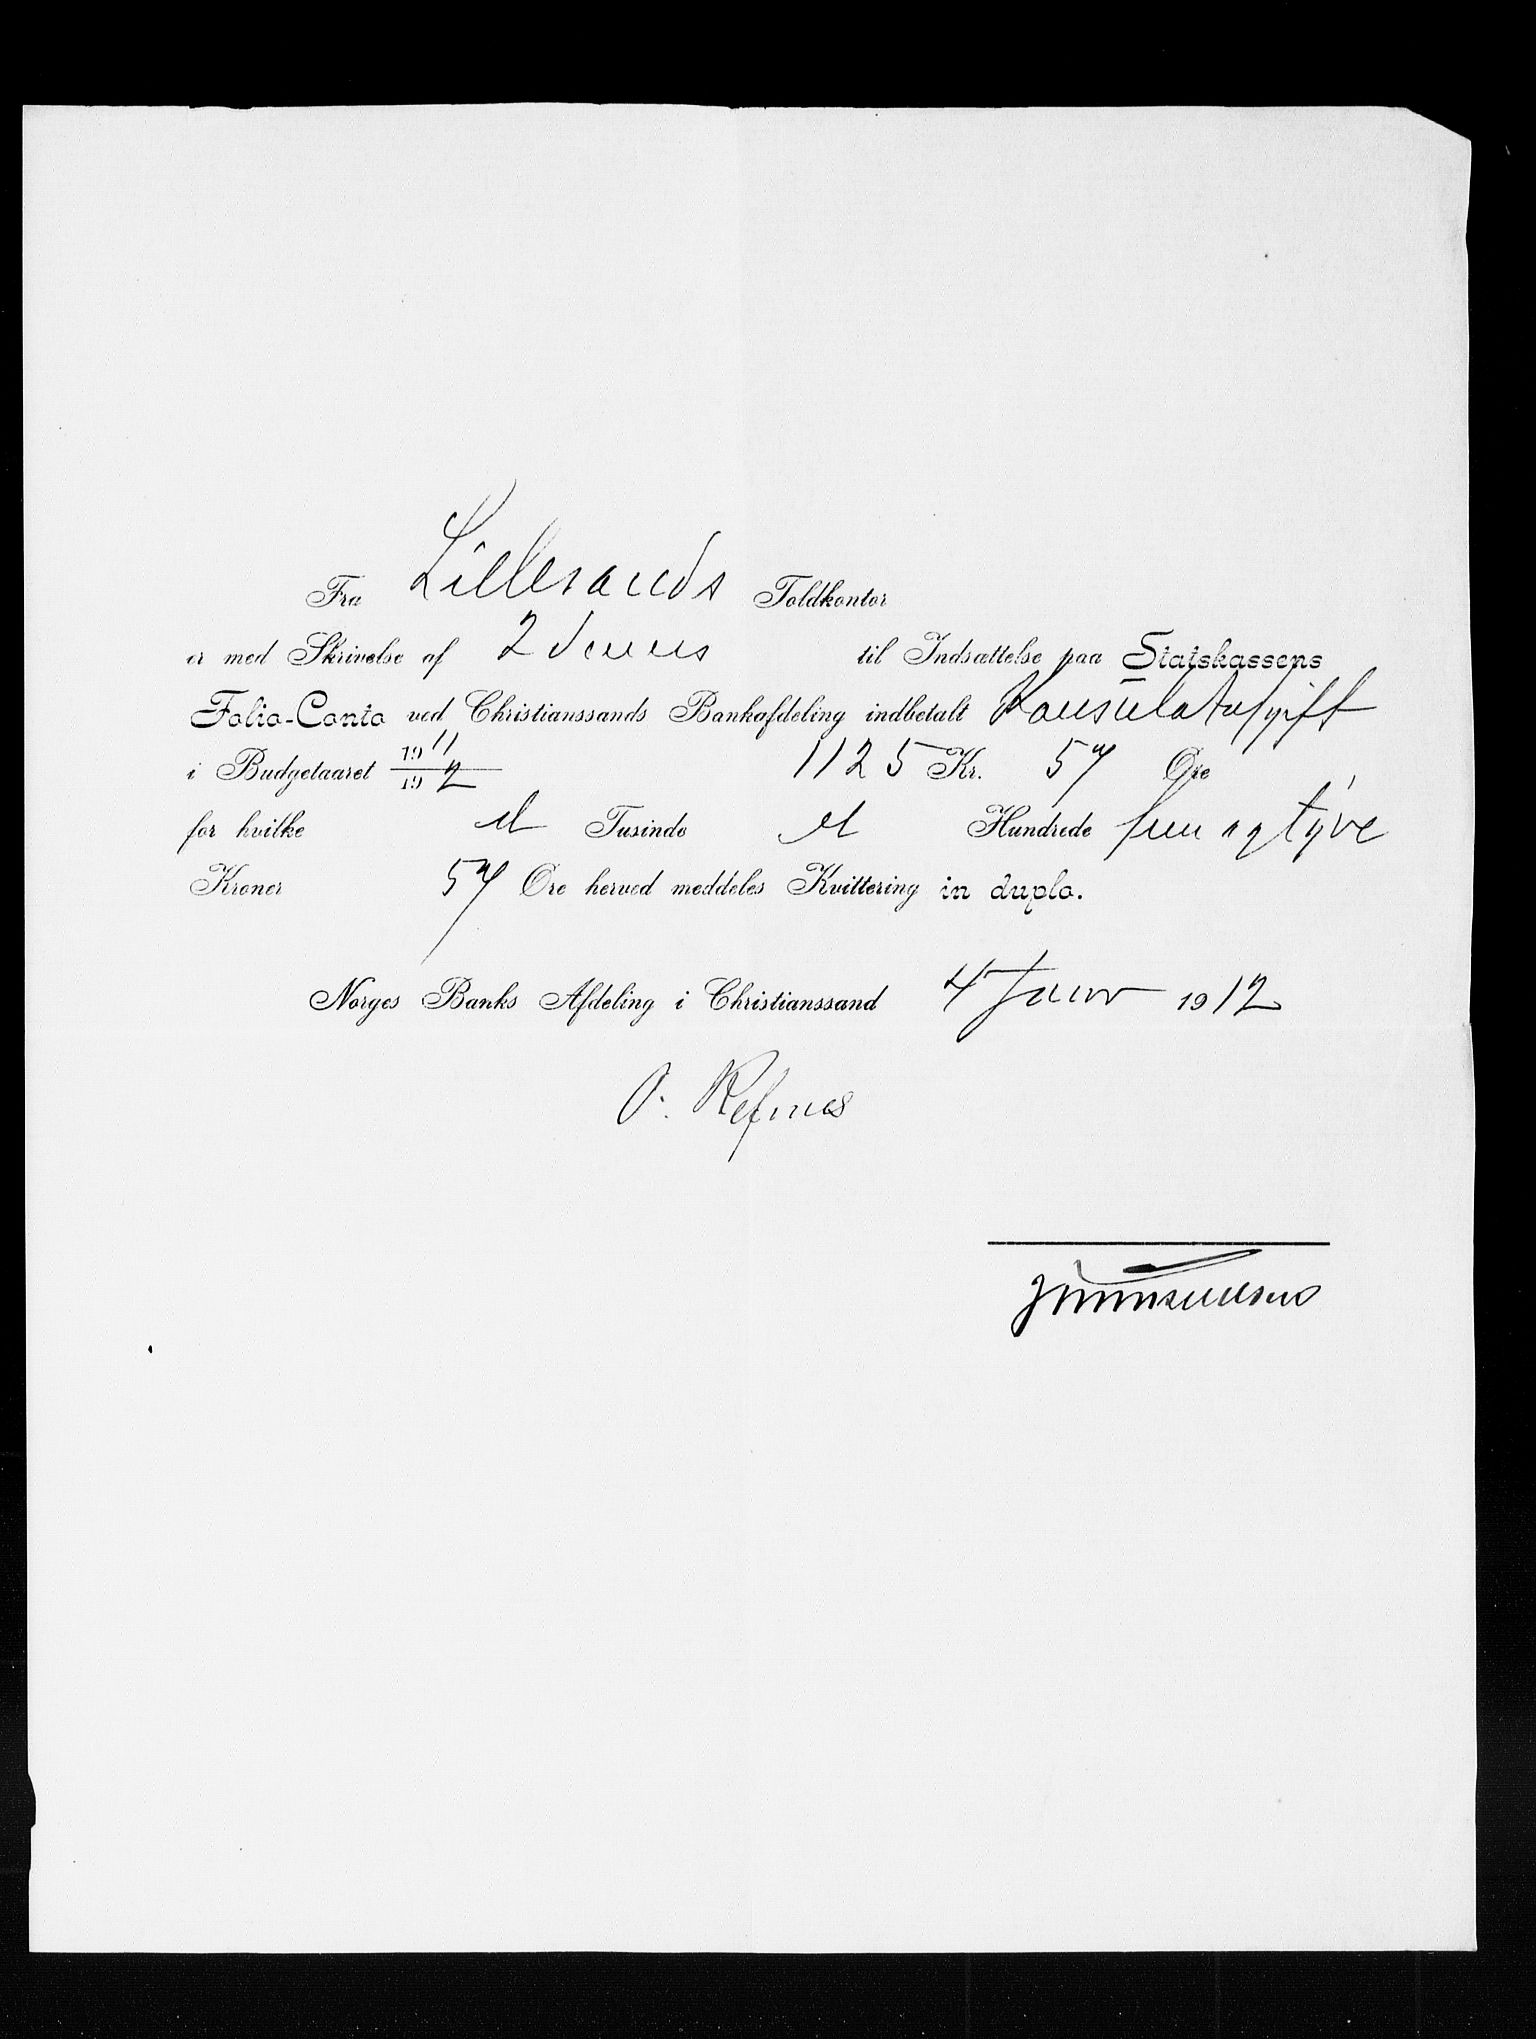 Fra Lillesands Toldkontor
er med Skrivelse af 2 dennes til Indsættelse paa Statskassens
Folio-Conto ved Christianssands Bankafdeling indbetalt Konsulatafgift
i Budgetaaret 1911/1912 1125 Kr. 57 Øre
for hvilke et Tusinde et Hundrede fem og tyve
Kroner 57 Øre herved meddeles Kvittering in duplo.
Norges Banks Afdeling i Christianssand 4 Janr 1912
O. Refsnes